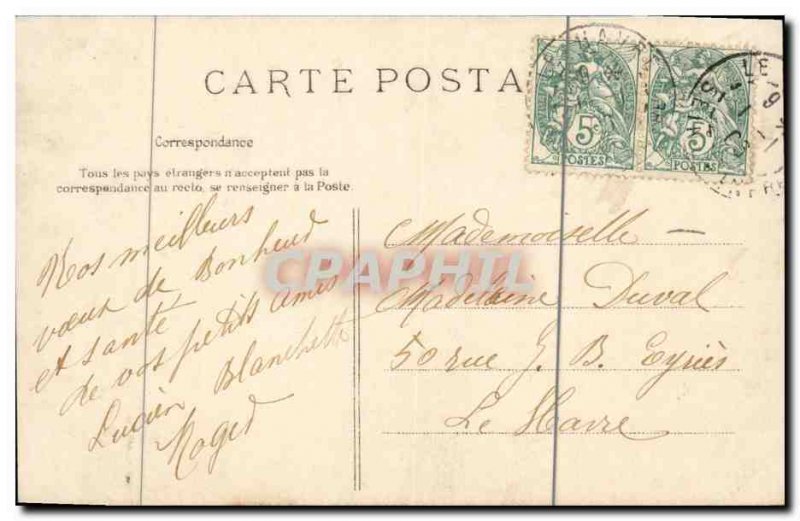 CARTE POSTA
Correspondance
Tous les pays étrangers n'acceptent pas la
correspondance au recto, se renseigner à la Poste.
Nos meilleurs
vœux de Bonheur
et santé
de vos petits amis
Lucien Blanchette
Roger
Mademoiselle —
Madeleine Duval
50 rue J. B. Eyriès
Le Havre
5c
POSTES
5c
POSTES
LE HAVRE
LE
CPAPHIL